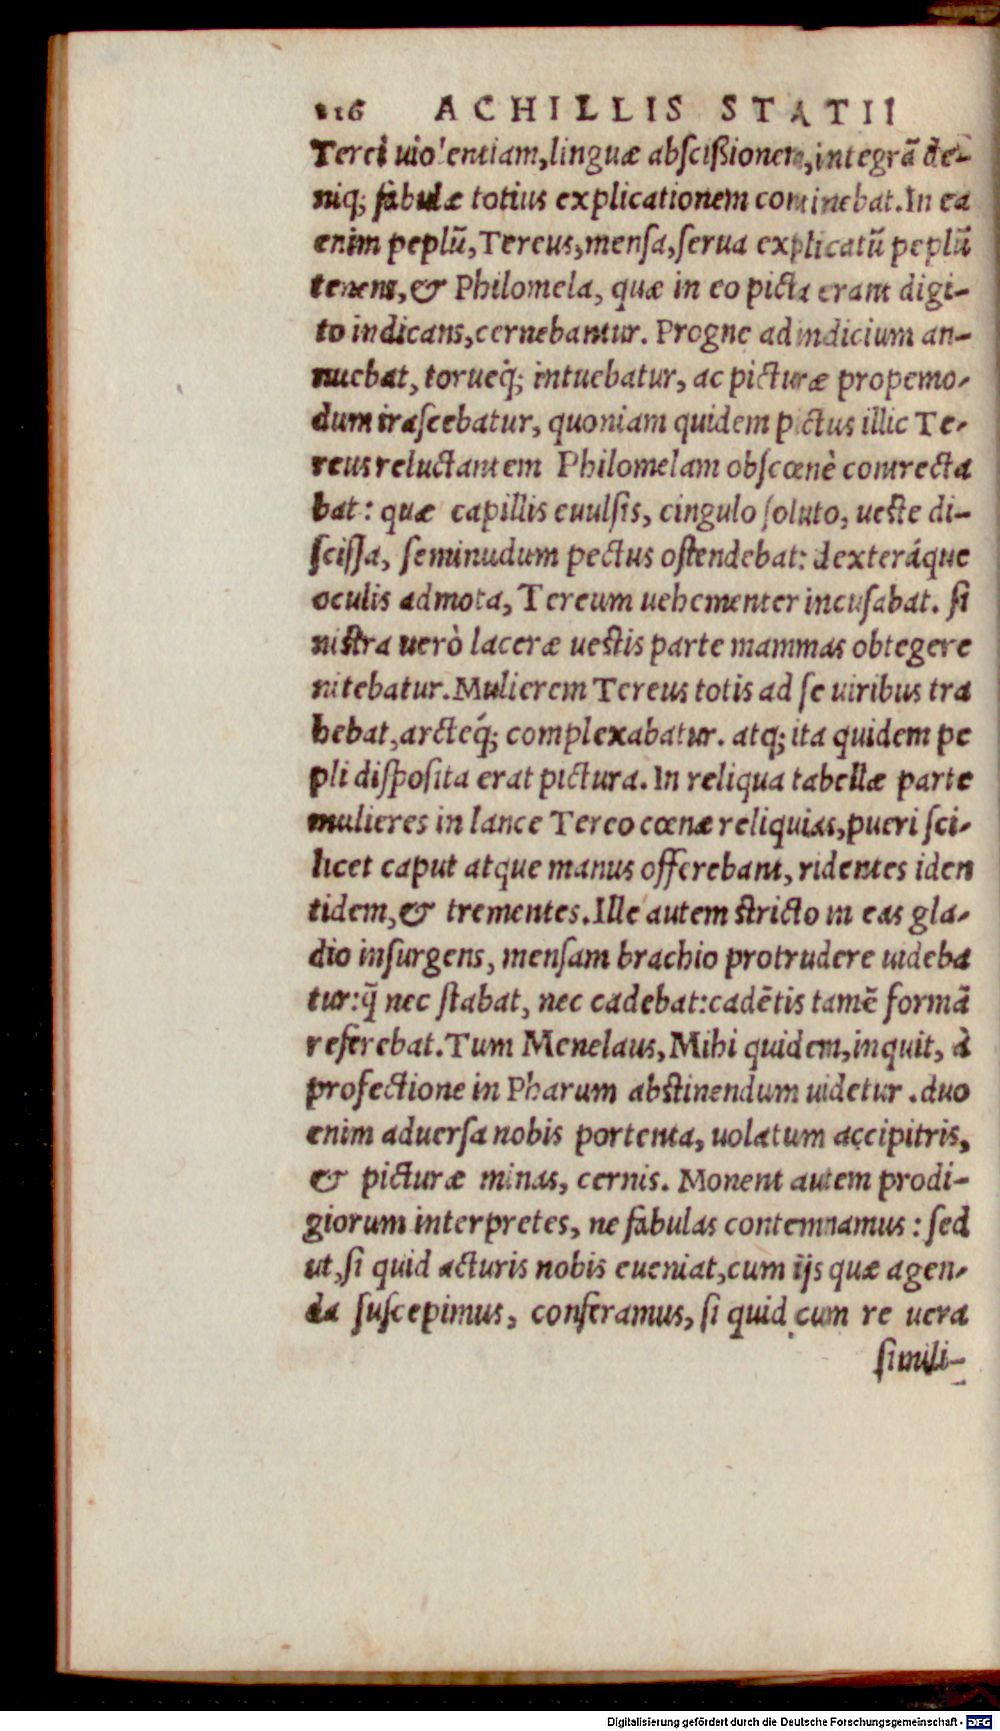 116 ACHILLIS STATII
Terei uiolentiam, linguæ abscißionem, integrā de-
niq; fabulæ totius explicationem continebat. In ea
enim peplū, Tereus, mensa, serua explicatū peplū
tenens, & Philomela, quæ in eo picta erant digi-
to indicans, cernebantur. Progne ad indicium an-
nuebat, torueq́; intuebatur, ac picturæ propemo-
dum irascebatur, quoniam quidem pictus illic Te-
reus reluctantem Philomelam obscœnè contrecta
bat: quæ capillis euulsis, cingulo soluto, ueste di-
scissa, seminudum pectus ostendebat: dexteráque
oculis admota, Tereum uehementer incusabat. si
nistra uerò laceræ uestis parte mammas obtegere
nitebatur. Mulierem Tereus totis ad se uiribus tra
hebat, arcteq́; complexabatur. atq; ita quidem pe
pli disposita erat pictura. In reliqua tabellæ parte
mulieres in lance Tereo cœnæ reliquias, pueri sci-
licet caput atque manus offerebant, ridentes iden
tidem, & trementes. Ille autem stricto in eas gla-
dio insurgens, mensam brachio protrudere uideba
tur: q̄ nec stabat, nec cadebat: cadētis tamē formā
referebat. Tum Menelaus, Mihi quidem, inquit, à
profectione in Pharum abstinendum uidetur. duo
enim aduersa nobis portenta, uolatum accipitris,
& picturæ minas, cernis. Monent autem prodi-
giorum interpretes, ne fabulas contemnamus: sed
ut, si quid acturis nobis eueniat, cum ijs quæ agen-
da suscepimus, conferamus, si quid cum re uera
simili-
Digitalisierung gefördert durch die Deutsche Forschungsgemeinschaft - DFG